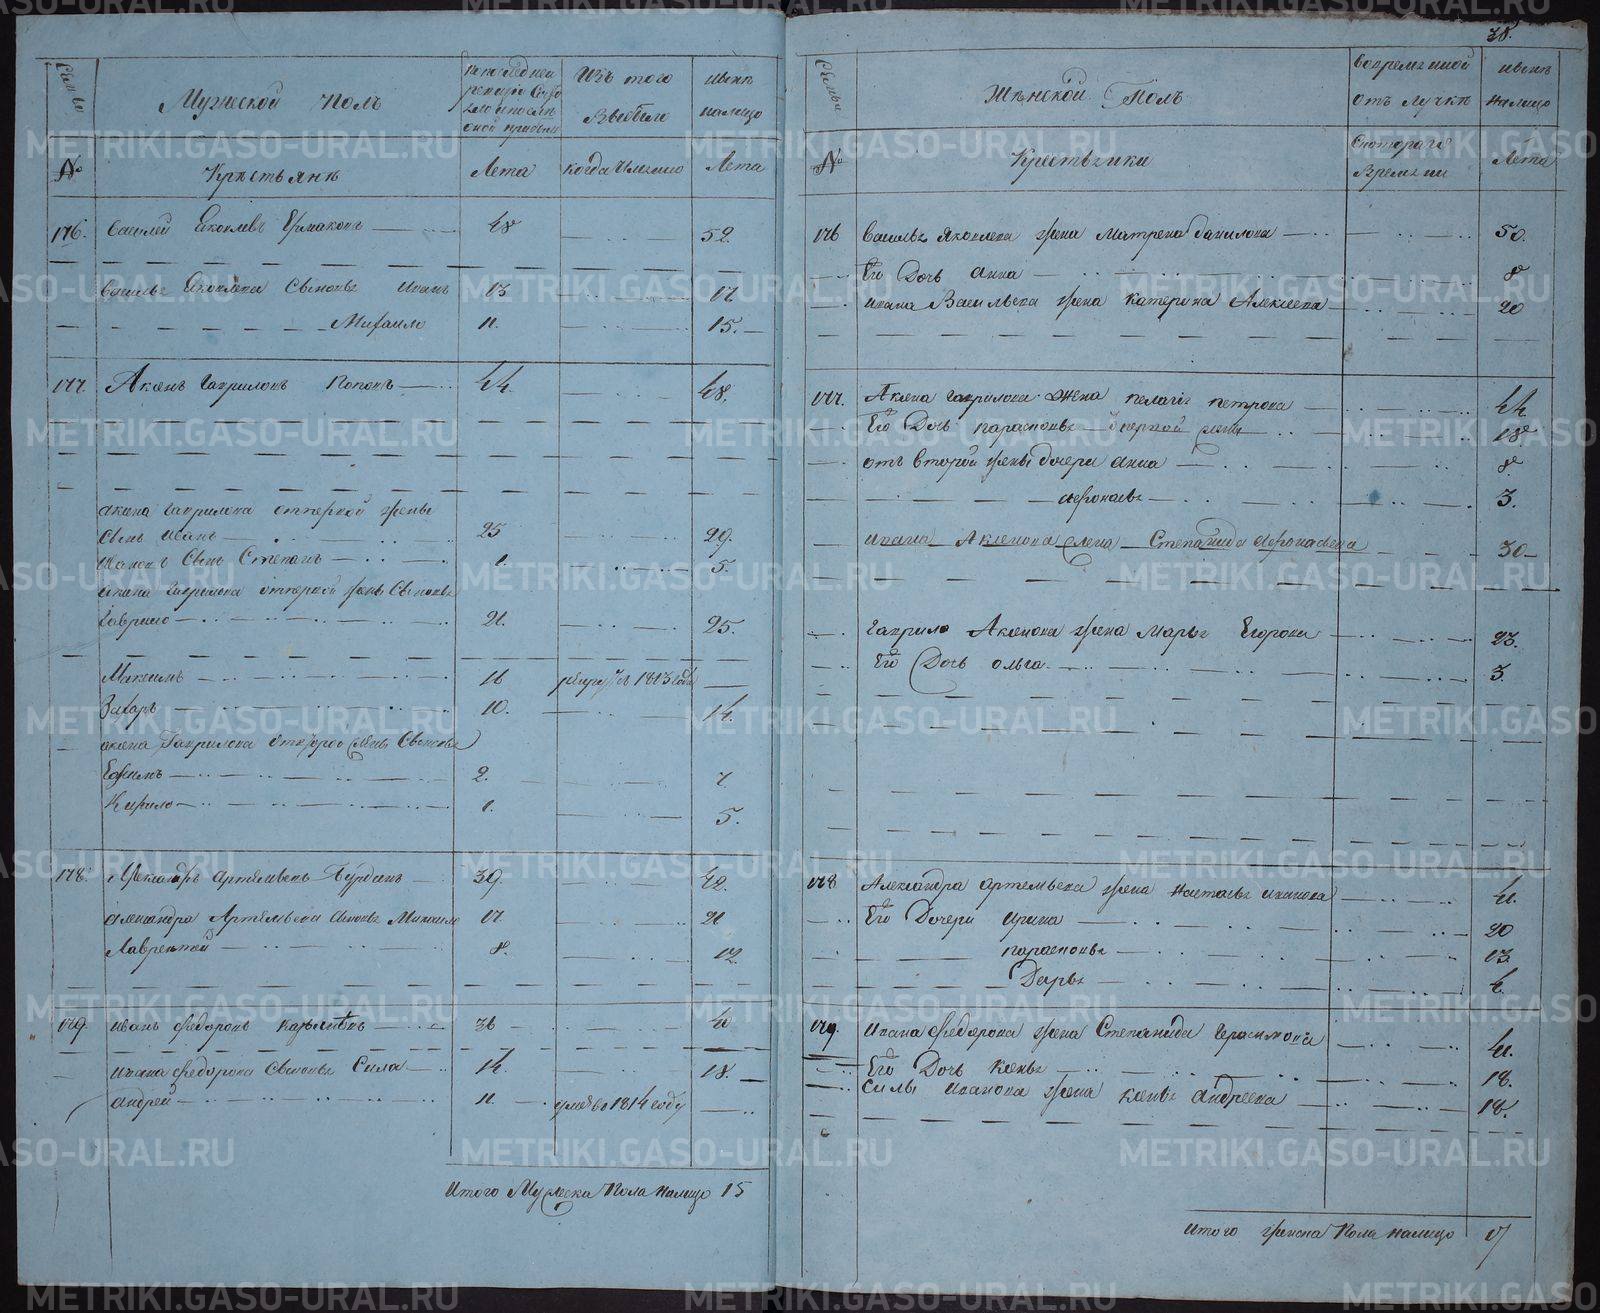 Семьи
Мужеской Полъ
По последней
ревизіи
Изъ того
Выбыло
Ныне
налицо
№
Крестьяне
Лета
когда имянно
Лета
176. Василей Яковлевъ Ермаковъ 48 52.
Василья Яковлева Сыновья Иванъ 13 17
Михаило 11. 15.
177. Аксенъ Гавриловъ Поповъ 44. 48.
Аксена Гаврилова отпервой жены
Сынъ Иванъ 25 29.
Ивановъ Сынъ Степанъ 1. 5.
Аксена Гаврилова отпервой жены Сыновья
Гаврило 21. 25.
Максимъ 16 1813 года
Захаръ 10. 14.
Аксена Гаврилова отвторой жены Сыновья
Ефимъ 2. 7
Кирило 1. 5.
178. Александръ Артемьевъ Бурдинъ 39. 42.
Александра Артемьева Сыновья Михаило 17 21
Лаврентей 8. 12
179. Иванъ Федоровъ 36 40
Ивана Федорова Сыновья Сила 14. 18.
Андрей 11. умре въ 1814 году
Итого Мужеска Пола налицо 15
38.
Семьи
Женской Полъ
Вовременной
отлучке
Ныне
налицо
№
Крестьянки
Скотораго
Времени
Лета
176 Василья Яковлева жена Матрена Данилова 50.
Его Дочь Анна 8
Ивана Васильева жена Катерина Алексеева 20
177. Аксена Гаврилова Жена Пелагея Петрова 44
Его Дочь Парасковья отпервой жены 18
отъ второй жены дочери Анна 8
Афронасья 3.
Ивана Аксенова жена Степанида Афонасьева 30
Гаврило Аксенова жена Марья Егорова 23.
Его Дочь Ольга 3.
178 Александра Артемьева жена Настасья Иванова 41.
Его Дочери Ирина 20
Парасковья 13.
Дарья 4.
179. Ивана Федорова жена Степанида Герасимова 41.
Его Дочь Ксенья 18.
Силы Иванова жена Ксенья Андреева 18.
Итого женска Пола налицо 17
METRIKI.GASO-URAL.RU